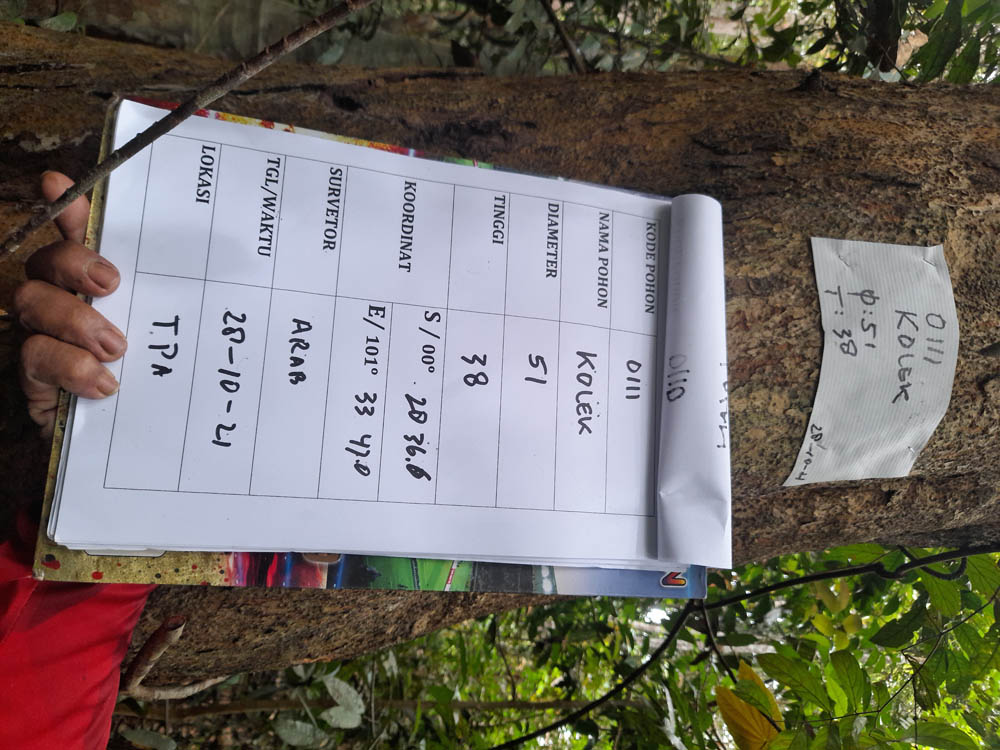 0111
KOLEK
φ: 51
T: 38
28-10-21
0110
KODE POHON 0111
NAMA POHON KOLEK
DIAMETER 51
TINGGI 38
KOORDINAT S / 00° 20 36.6
E/ 101° 33 47.0
SURVETOR ARAB
TGL/WAKTU 28-10-21
LOKASI T.PA